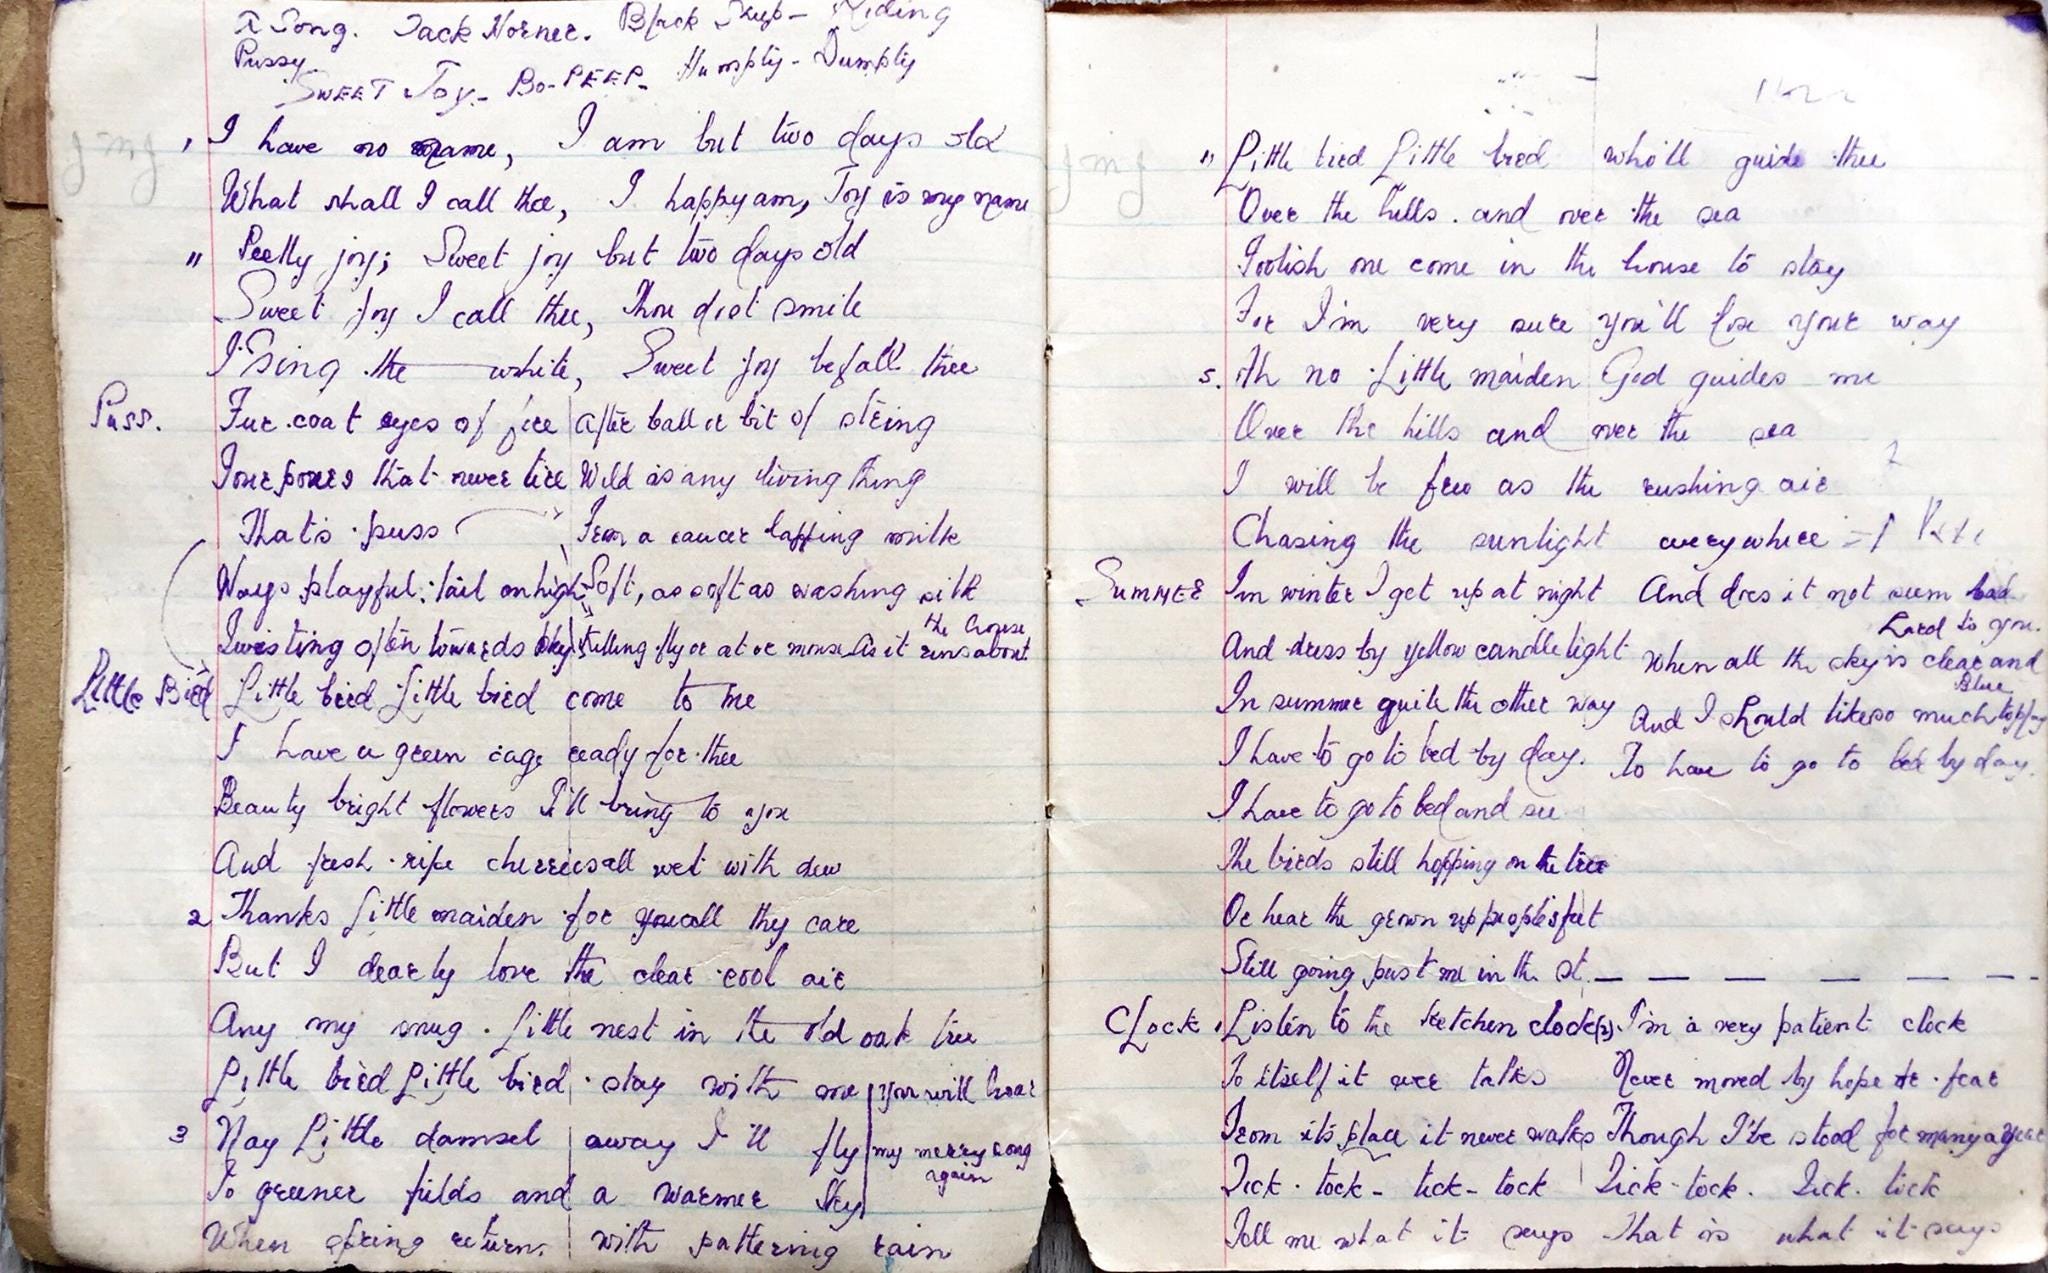 A Song. Jack Horner. Black Sheep - Riding
Pussy
SWEET Joy - BO-PEEP - Humpty - Dumpty
jmj
, I have no name, I am but two days old
What shall I call thee, I happy am, Joy is my name
" Pretty joy; Sweet joy but two days old
Sweet joy I call thee, Thou dost smile
I sing the — white, Sweet joy befall thee
Puss. Fur coat eyes of fire After ball or bit of string
Four paws that never tire Wild as any living thing
That's puss From a saucer lapping milk
Ways playful: tail on high Soft, as soft as washing silk
Twisting often towards sky Stilling fly or at or mouse As it runs about
the house
Little Bird Little bird Little bird come to me
I have a green cage ready for thee
Beauty bright flowers I'll bring to you
And fresh ripe cherries all wet with dew
2 Thanks Little maiden for you all thy care
But I dearly love the clear cool air
Any my snug Little nest in the old oak tree
Little bird Little bird stay with me you will hear
3 Nay Little damsel away I'll fly my merry song
again
To greener fields and a warmer sky
When spring returns with pattering rain
jmj
" Little bird Little bird who'll guide thee
Over the hills and over the sea
Foolish one come in the house to stay
For I'm very sure you'll lose your way
5. Ah no Little maiden God guides me
Over the hills and over the sea
I will be free as the rushing air
Chasing the sunlight everywhere
SUMMER In winter I get up at night And does it not seem
hard to you.
And dress by yellow candle light When all the sky is clear and
Blue
In summer quite the other way And I should like so much to play
I have to go to bed by day. To have to go to bed by day.
I have to go to bed and see
The birds still hopping on the tree
Or hear the grown up people's feet
Still going past me in the st. — — — — — —
CLock 1 Listen to the ketchen clock (2). I'm a very patient clock
To itself it ever talks Never moved by hope or fear
From its place it never walks Though I've stood for many a year
Tick - tock - tick - tock Tick - tock. Tick. tick
Tell me what it says That is what it says